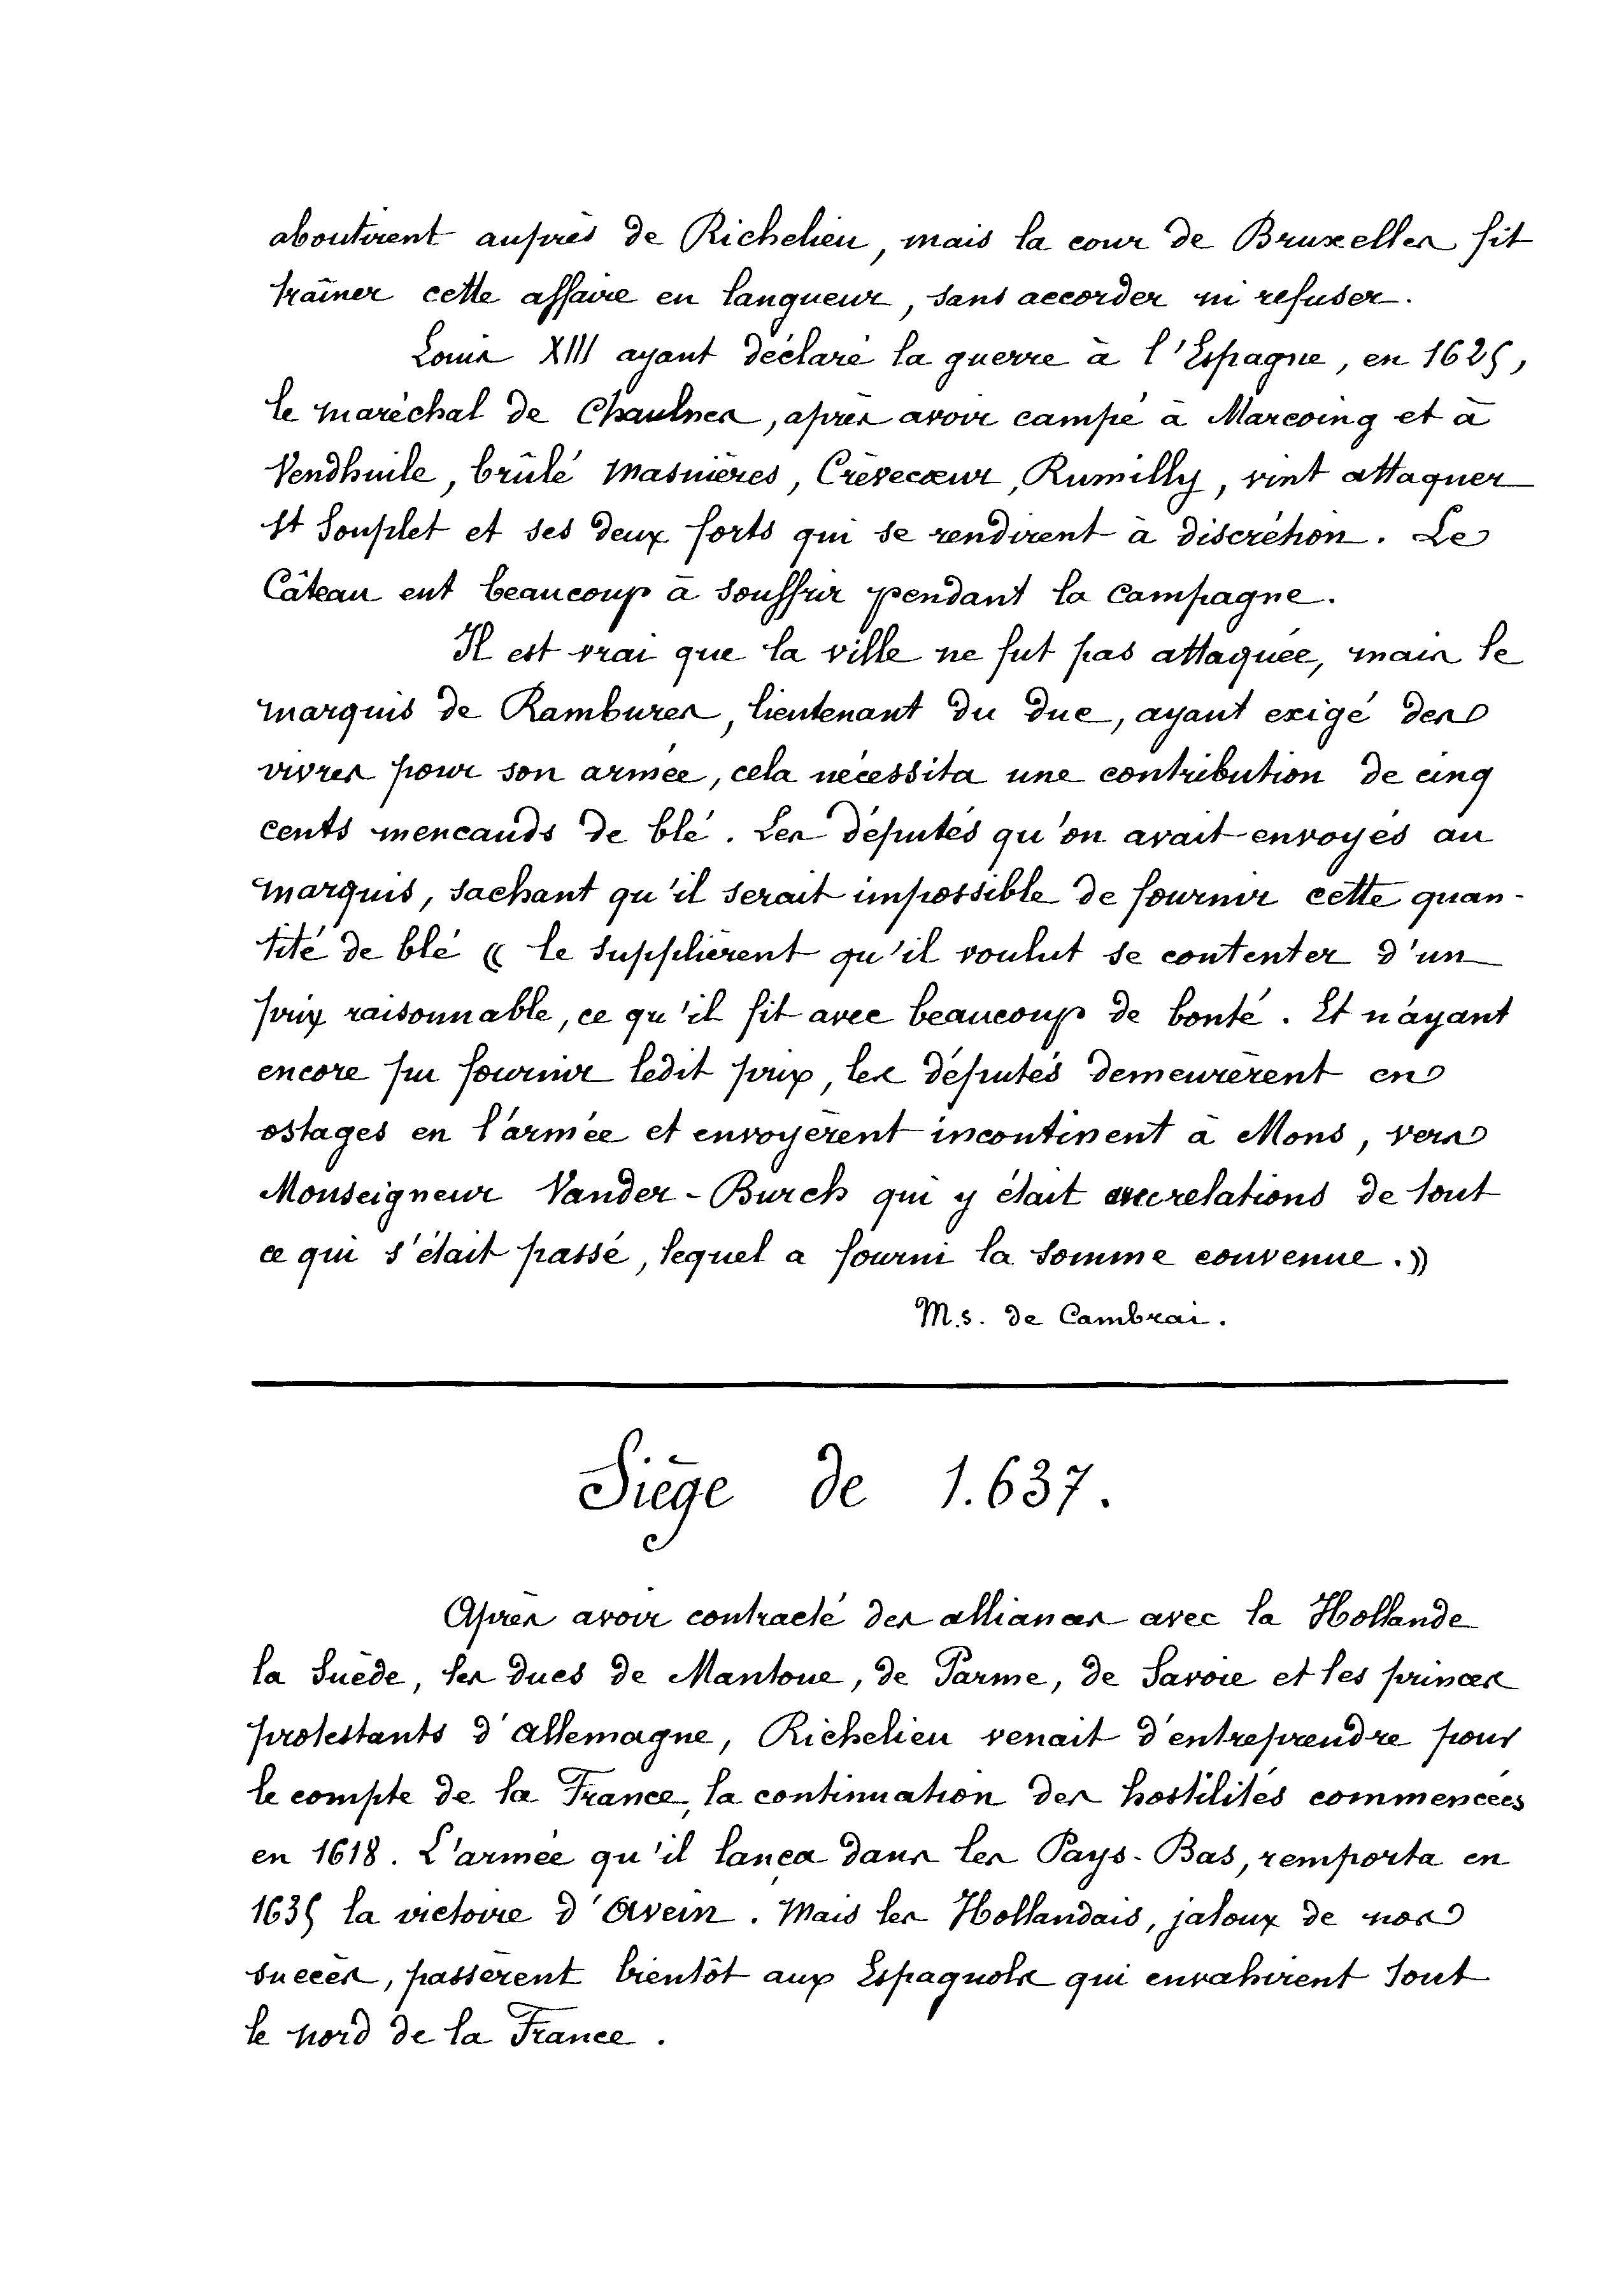 aboutirent auprès de Richelieu, mais la cour de Bruxelles fit
traîner cette affaire en langueur, sans accorder ni refuser.
Louis XIII ayant déclaré la guerre à l'Espagne, en 1625,
le maréchal de Chaulnes, après avoir campé à Marcoing et à
Vendhuile, brûlé Masnières, Crèvecœur, Rumilly, vint attaquer
St Souplet et ses deux forts qui se rendirent à discrétion. Le
Câteau eut beaucoup à souffrir pendant la campagne.
Il est vrai que la ville ne fut pas attaquée, mais le
marquis de Rambures, lieutenant du duc, ayant exigé des
vivres pour son armée, cela nécessita une contribution de cinq
cents mencauds de blé. Les députés qu'on avait envoyés au
marquis, sachant qu'il serait impossible de fournir cette quan-
tité de blé « le supplièrent qu'il voulut se contenter d'un
prix raisonnable, ce qu'il fit avec beaucoup de bonté. Et n'ayant
encore pu fournir ledit prix, les députés demeurèrent en
ostages en l'armée et envoyèrent incontinent à Mons, vers
Monseigneur Vander-Burch qui y était relations de tout
ce qui s'était passé, lequel a fourni la somme convenue. »
M.s. de Cambrai.
Siège de 1.637.
Après avoir contracté des alliances avec la Hollande
la Suède, les ducs de Mantoue, de Parme, de Savoie et les princes
protestants d'Allemagne, Richelieu venait d'entreprendre pour
le compte de la France, la continuation des hostilités commencées
en 1618. L'armée qu'il lança dans les Pays-Bas, remporta en
1635 la victoire d'Avein. Mais les Hollandais, jaloux de nos
succès, passèrent bientôt aux Espagnols qui envahirent tout
le nord de la France.